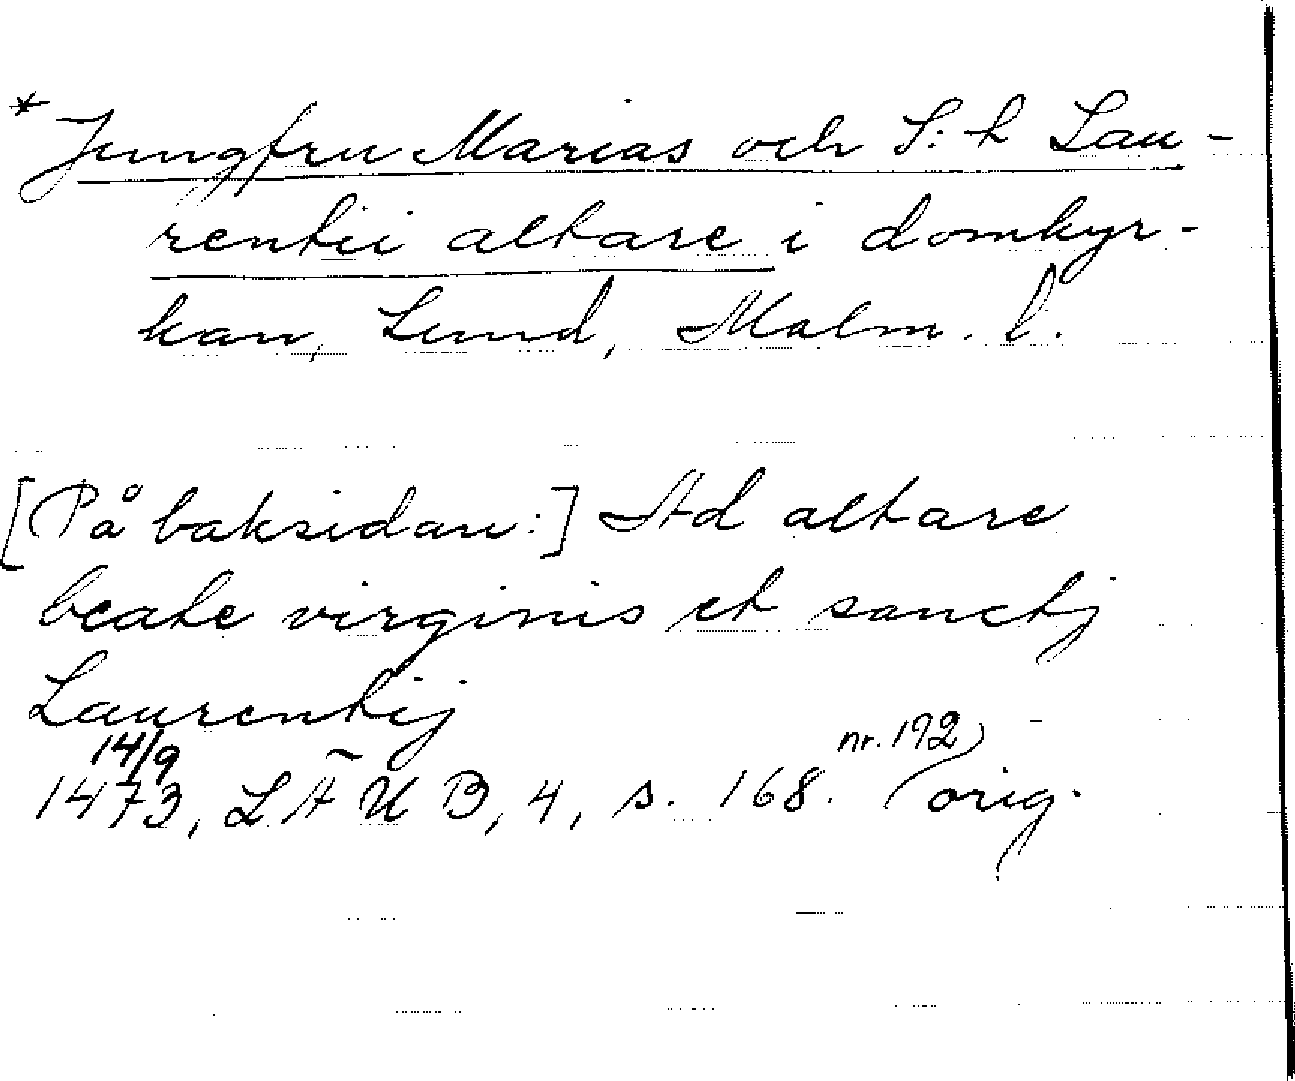 * Jungfru Marias och S:t Lau-
rentii altare i domkyr-
kan, Lund, Malm. l.
[På baksidan:] Ad altare
beate virginis et sanctj
Laurentij
14/9 nr. 192
1473, LÄUB, 4, s. 168. (orig.)